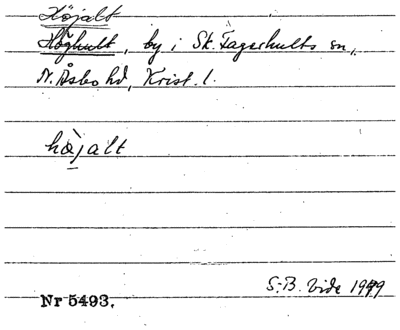 Höjalt
Höghult, by i Sk. Fagerhults sn,
N. Åsbo hd, Krist. l.
højalt
S.-B. Vide 1949
Nr 5493.